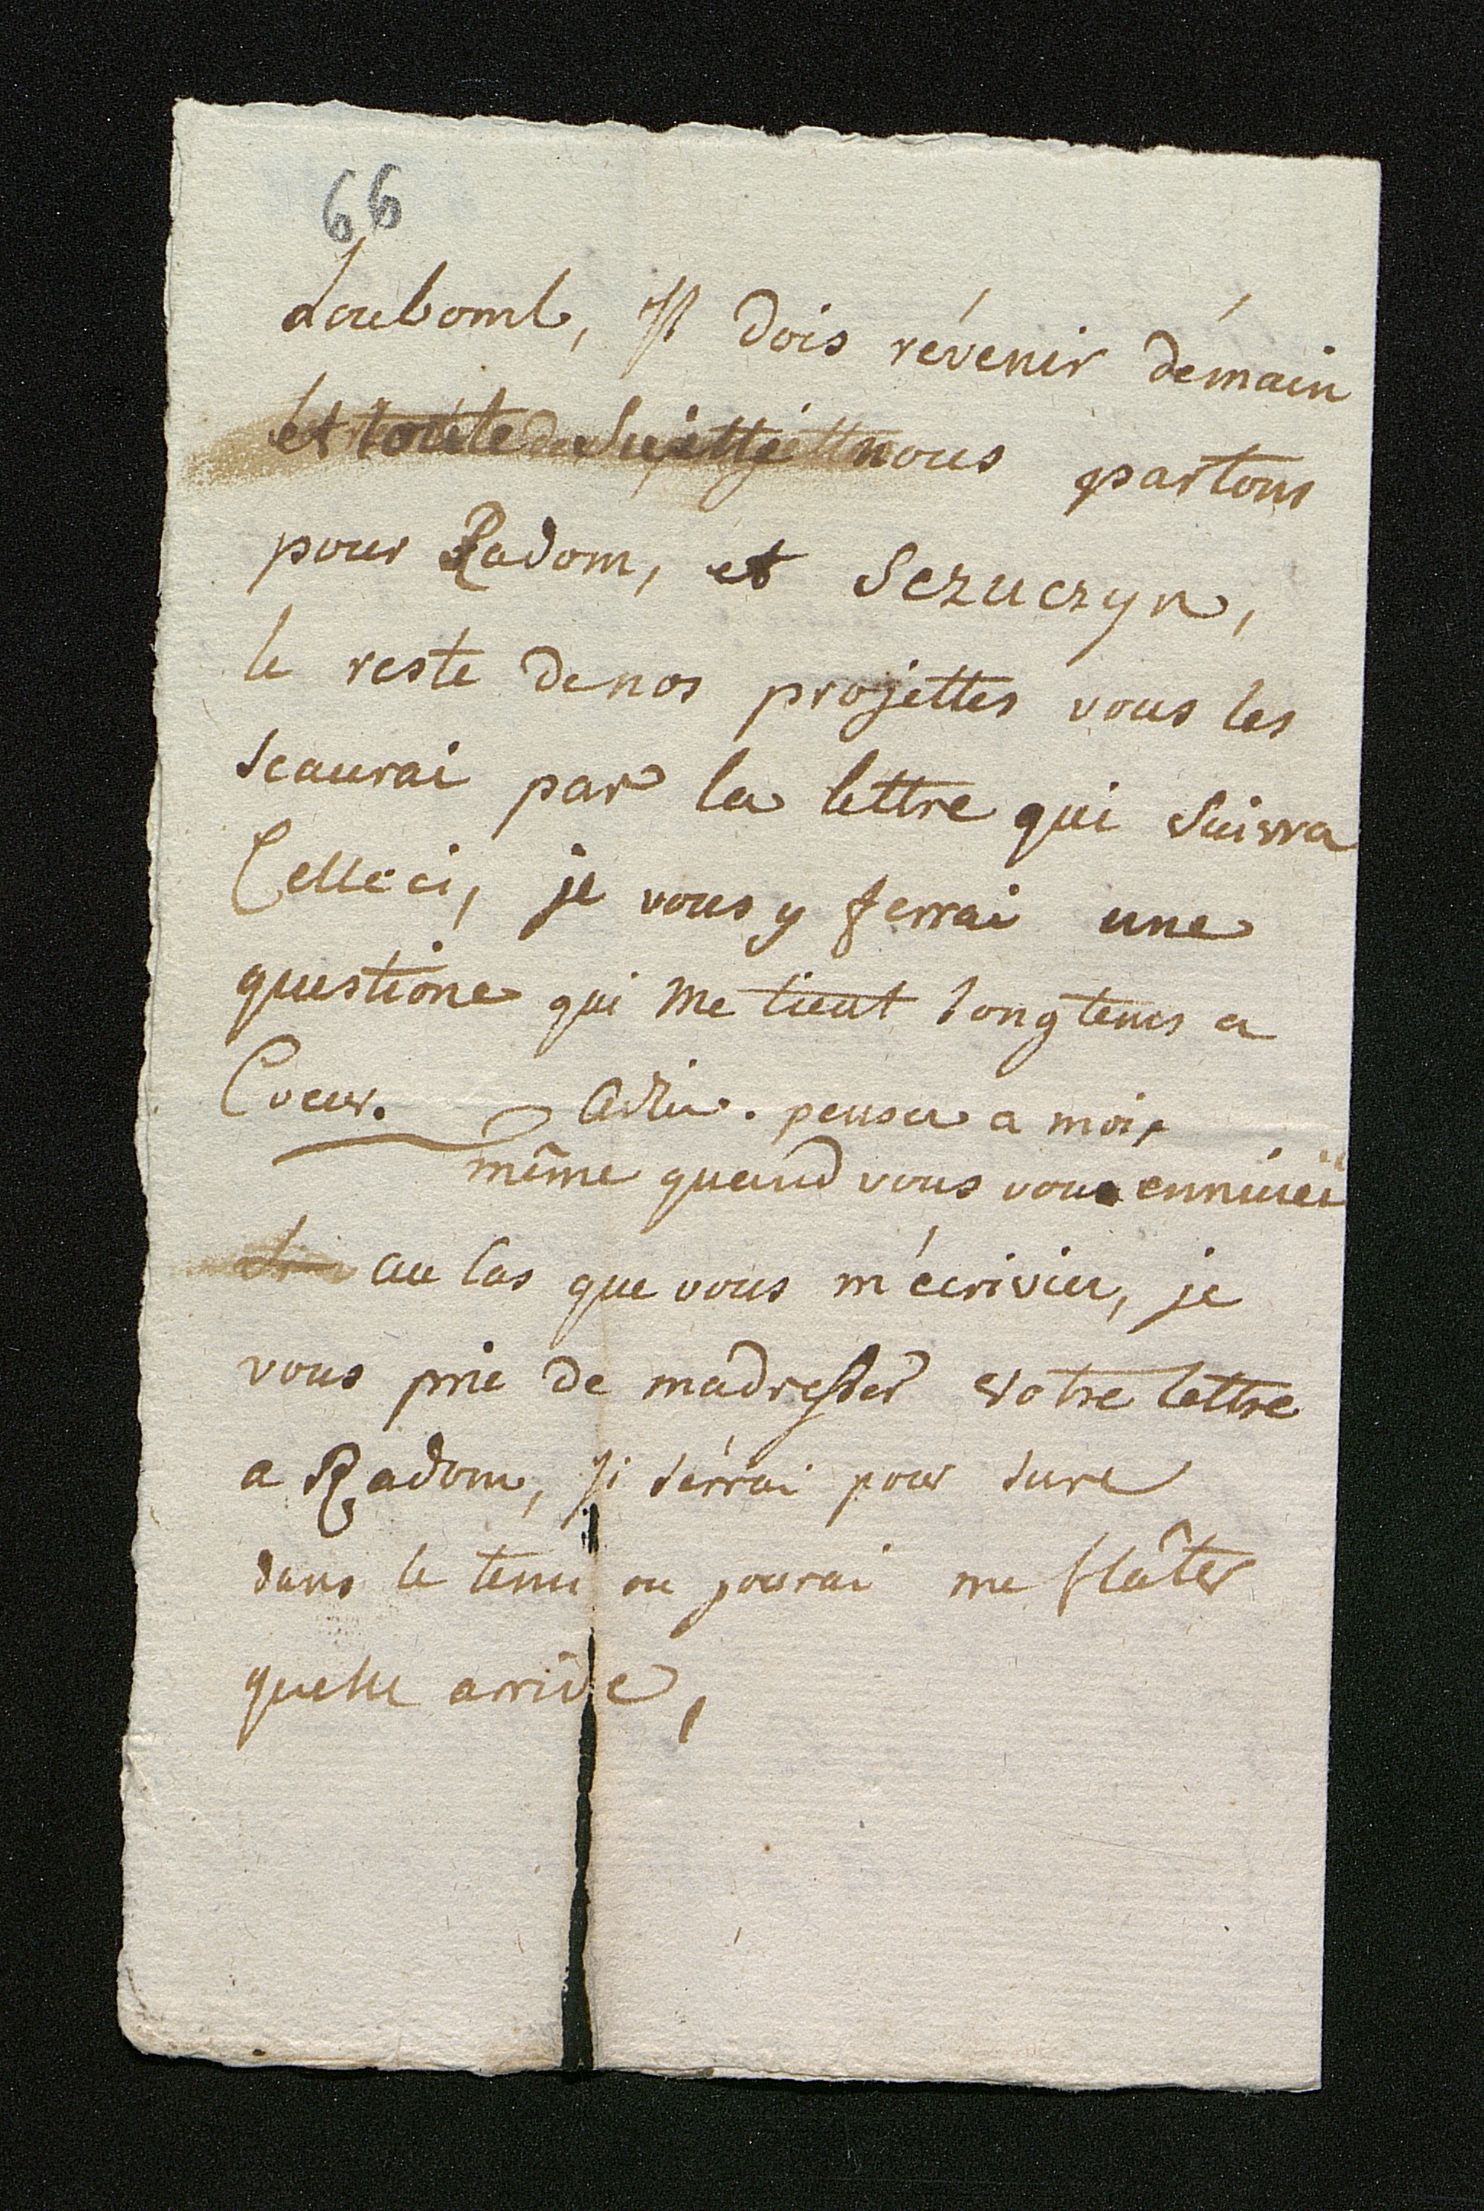 66
Louboml, Il dois révenir démain
et toute de suitte nous partons
pour Radom, et Sczuczyn,
le reste de nos projettes vous les
scaurai par la lettre qui suivra
Celle ci, je vous y ferrai une
questione qui me tient longtems a
Coeur. Adieu. penser a moi,
même quand vous vous ennuier
au cas que vous m'écrivier, je
vous prie de madresser votre lettre
a Radom, ji sérrai pour sure
dans le tems ou pourai me flâter
quelle arrive,